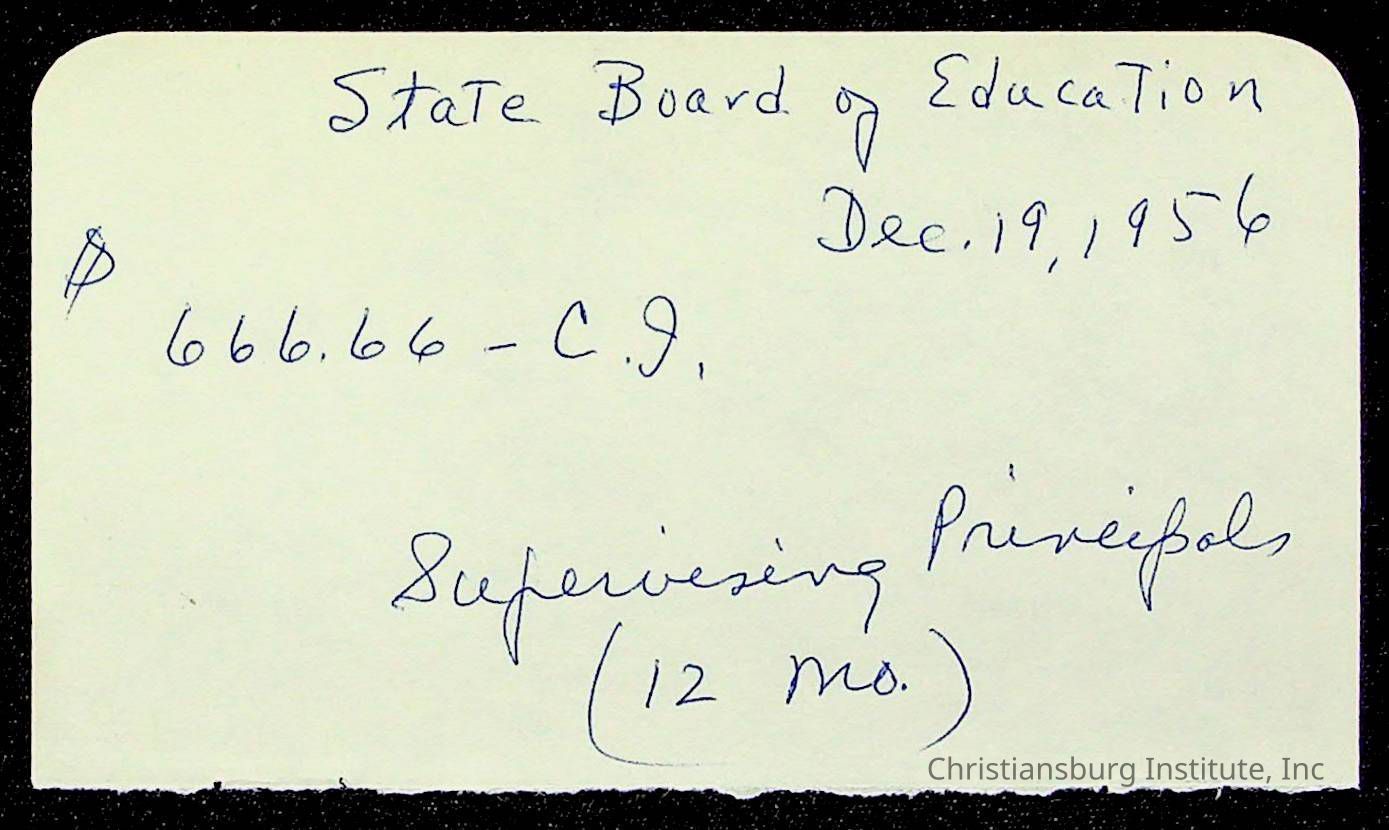 State Board of Education
Dec. 19, 1956
$
666.66 - C.I.
Supervising Principals
(12 mo.)
Christiansburg Institute, Inc